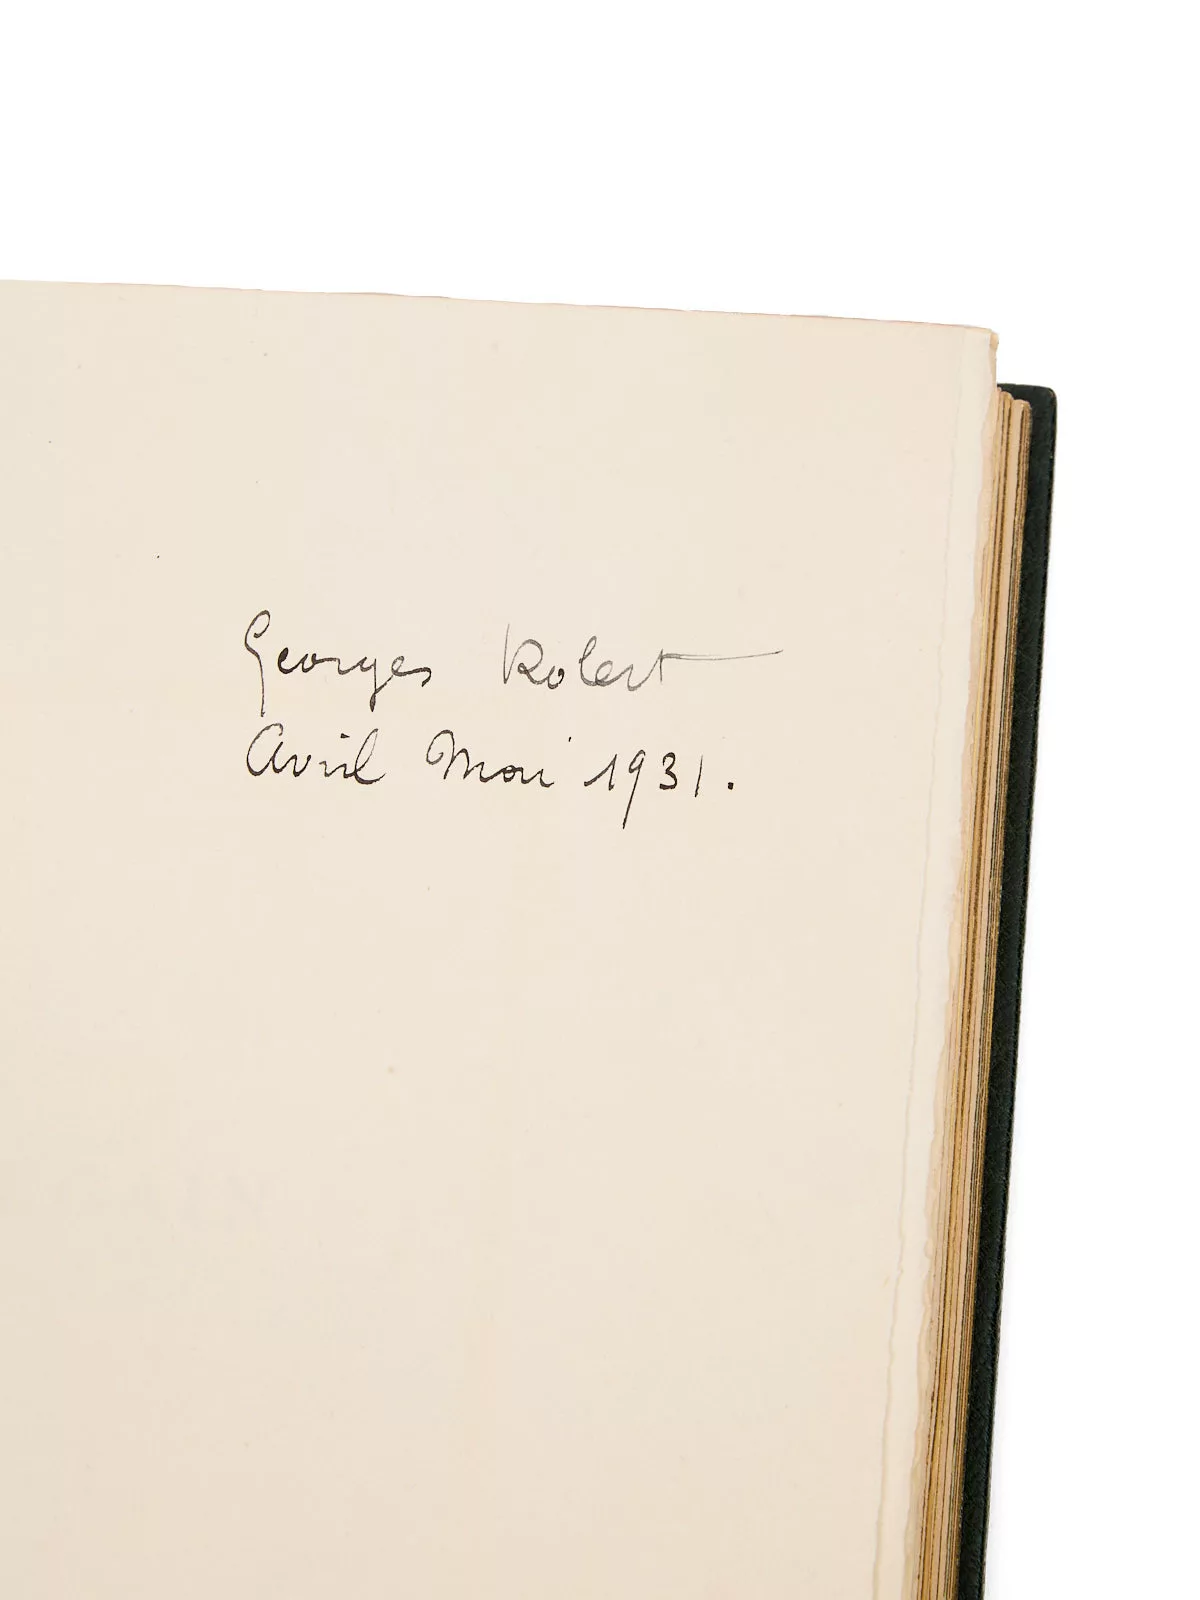 Georges Robert
Avril Mai 1931.